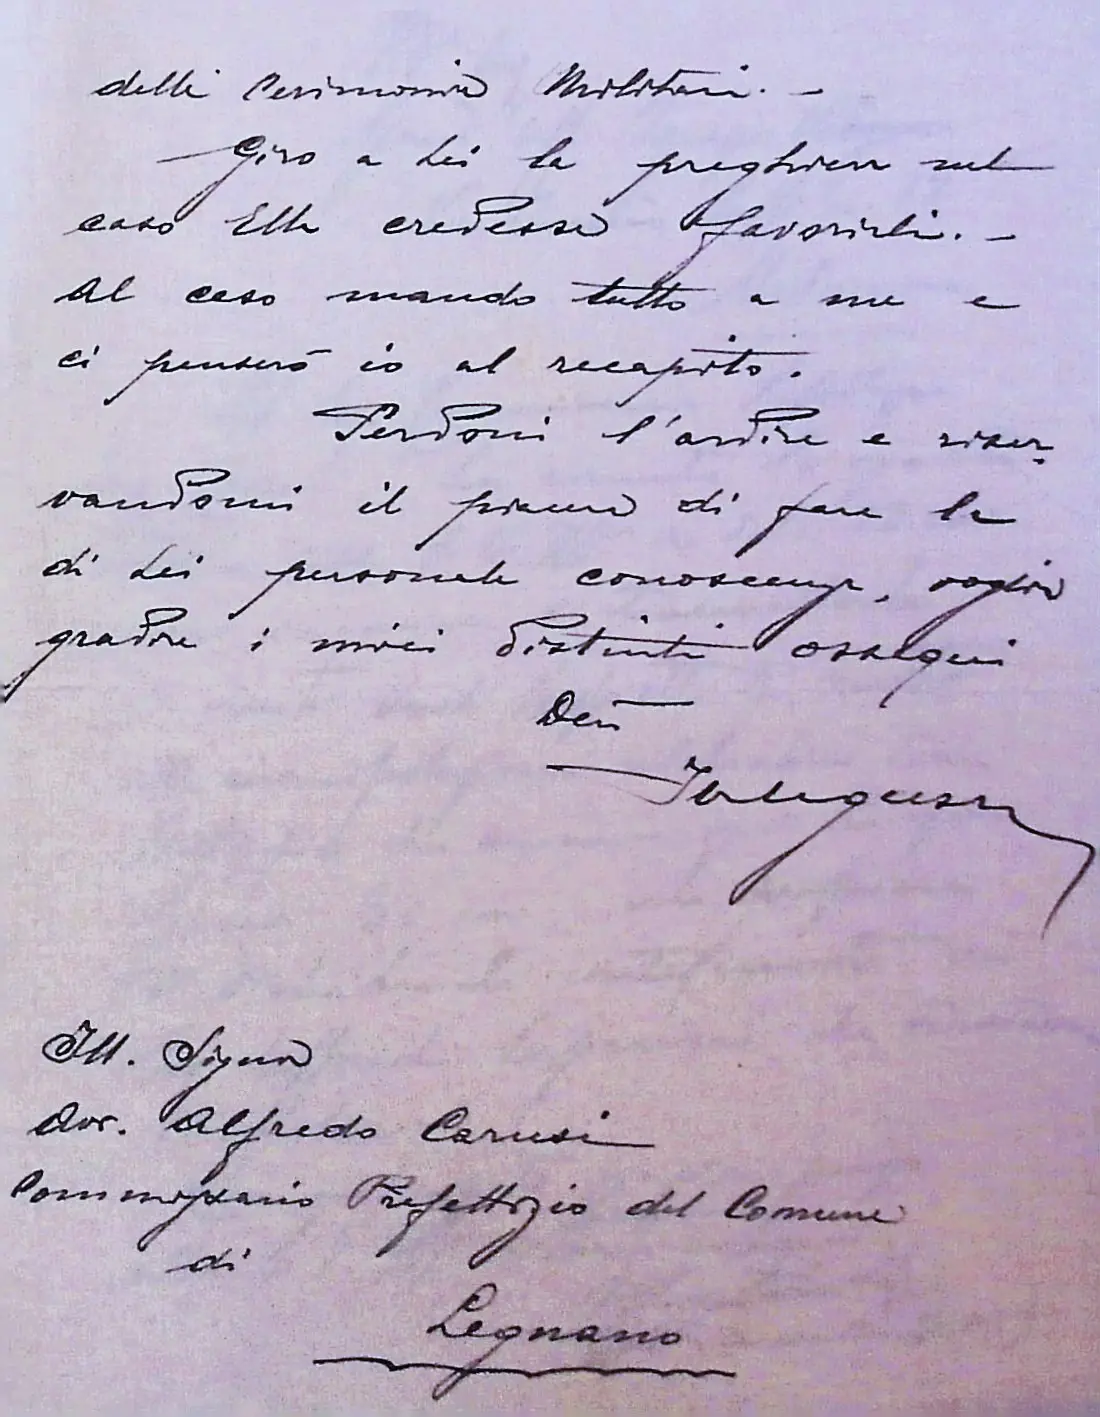 delle Cerimonie Militari. -
Giro a Lei la preghiera nel
caso Ella credesse favorirli. -
Al caso mando tutto a me e
ci penserò io al recapito.
Perdoni l'ardire e riser-
vandomi il piacere di fare la
di Lei personale conoscenza, voglia
gradire i miei distinti ossequi
Dev
Ill. Signor
Avv. Alfredo Carusi
Commissario Prefettizio del Comune
di
Legnano